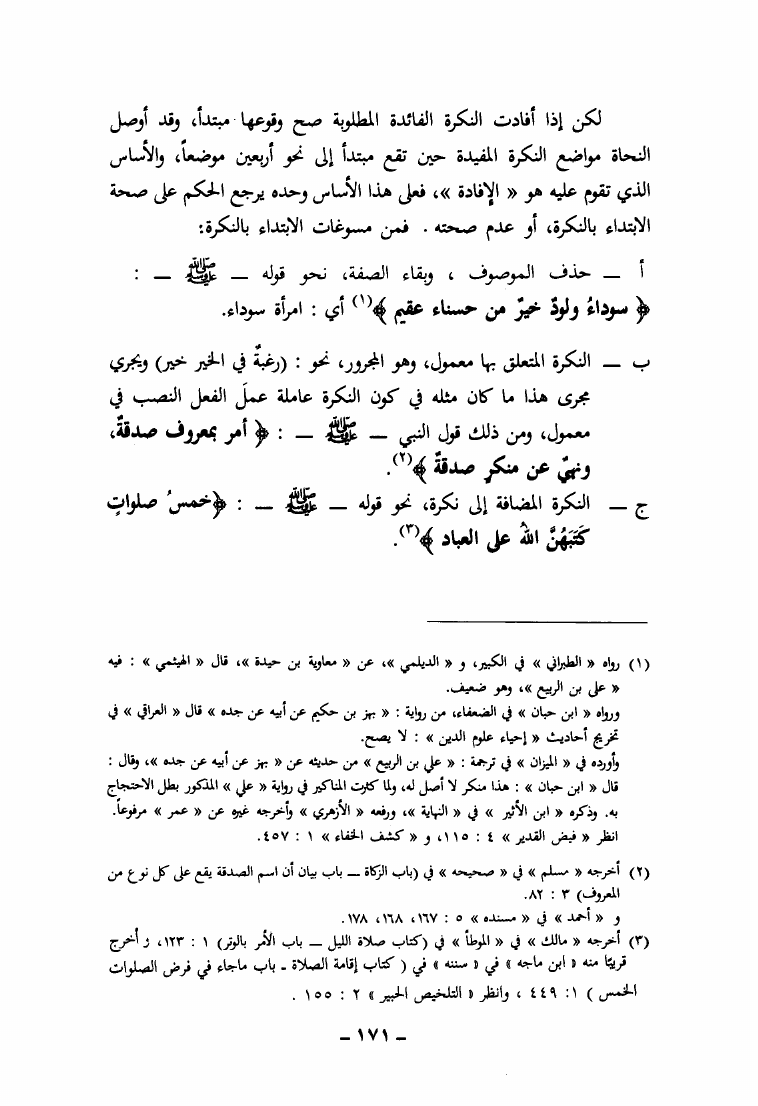 لكن إذا أفادت النكرة الفائدة المطلوبة صح وقوعها مبتدأ، وقد أوصل
النحاة مواضع النكرة المفيدة حين تقع مبتدأ إلى نحو أربعين موضعاً، والأساس
الذي تقوم عليه هو « الإفادة »، فعلى هذا الأساس وحده يرجع الحكم على صحة
الابتداء بالنكرة، أو عدم صحته . فمن مسوغات الابتداء بالنكرة:
أ — حذف الموصوف ، وبقاء الصفة، نحو قوله — ﷺ — :
﴿ سوداءُ ولودٌ خيرٌ من حسناء عقيم ﴾(١) أي : امرأة سوداء.
ب — النكرة المتعلق بها معمول، وهو المجرور، نحو : (رغبةٌ في الخير خير) ويجري
مجرى هذا ما كان مثله في كون النكرة عاملة عملَ الفعل النصب في
معمول، ومن ذلك قول النبي — ﷺ — : ﴿ أمر بمعروف صدقةٌ،
ونهيٌ عن منكرٍ صدقةٌ ﴾(٢).
ج — النكرة المضافة إلى نكرة، نحو قوله — ﷺ — : ﴿خمسُ صلواتٍ
كَتَبَهُنَّ اللهُ على العباد ﴾(٣).
(١) رواه « الطبراني » في الكبير، و « الديلمي »، عن « معاوية بن حيدة »، قال « الهيثمي » : فيه
« على بن الربيع »، وهو ضعيف.
ورواه « ابن حبان » في الضعفاء، من رواية : « بهز بن حكيم عن أبيه عن جده » قال « العراقي » في
تخريج أحاديث « إحياء علوم الدين » : لا يصح.
وأورده في « الميزان » في ترجمة : « علي بن الربيع » من حديثه عن « بهز عن أبيه عن جده »، وقال :
قال « ابن حبان » : هذا منكر لا أصل له، ولما كثرت المناكير في رواية « علي » المذكور بطل الاحتجاج
به. وذكره « ابن الأثير » في « النهاية »، ورفعه « الأزهري » وأخرجه غيره عن « عمر » مرفوعاً.
انظر « فيض القدير » ٤ : ١١٥، و « كشف الخفاء » ١ : ٤٥٧.
(٢) أخرجه « مسلم » في « صحيحه » في (باب الزكاة — باب بيان أن اسم الصدقة يقع على كل نوع من
المعروف) ٣ : ٨٢.
و « أحمد » في « مسنده » ٥ : ١٦٧، ١٦٨، ١٧٨.
(٣) أخرجه « مالك » في « الموطأ » في (كتاب صلاة الليل — باب الأمر بالوتر) ١ : ١٢٣، وأخرج
قريبًا منه « ابن ماجه » في « سننه » في ( كتاب إقامة الصلاة - باب ماجاء في فرض الصلوات
الخمس ) ١: ٤٤٩ ، وانظر « التلخيص الحبير » ٢ : ١٥٥ .
– ١٧١ –